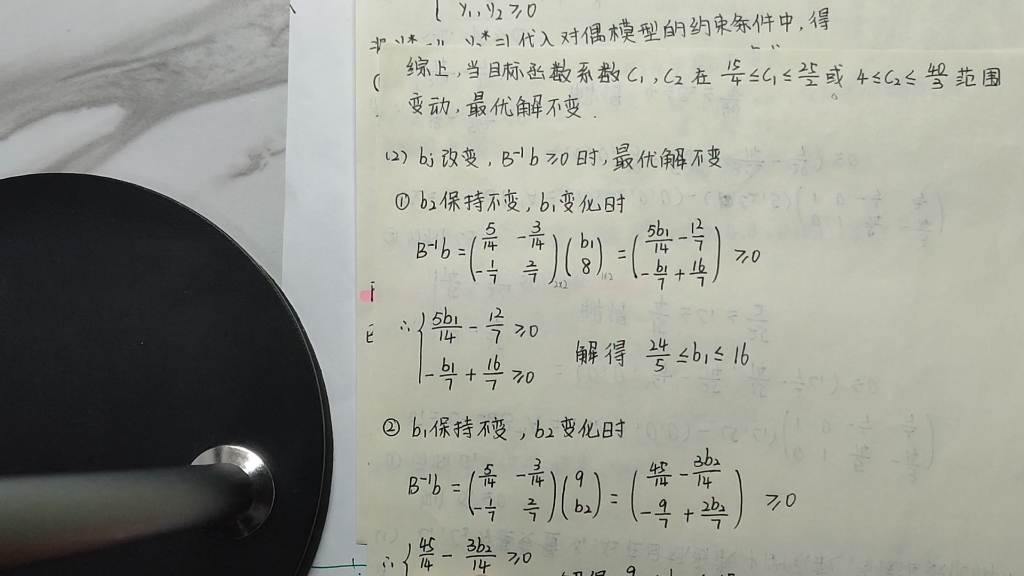 y₁, y₂ ≥ 0
代入对偶模型的约束条件中,得
综上,当目标函数系数 C₁, C₂ 在 15/4 ≤ C₁ ≤ 25/2 或 4 ≤ C₂ ≤ 40/3 范围
变动,最优解不变.
(2) bj 改变, B⁻¹b ≥ 0 时,最优解不变
① b₂保持不变, b₁变化时
B⁻¹b = (5/14 -3/14 -1/7 2/7)₂ₓ₂ (b₁ 8) = (5b₁/14 - 12/7 -b₁/7 + 16/7) ≥ 0
∴ { 5b₁/14 - 12/7 ≥ 0
-b₁/7 + 16/7 ≥ 0
解得 24/5 ≤ b₁ ≤ 16
② b₁保持不变, b₂变化时
B⁻¹b = (5/14 -3/14 -1/7 2/7) (9 b₂) = (45/14 - 3b₂/14 -9/7 + 2b₂/7) ≥ 0
∴ { 45/14 - 3b₂/14 ≥ 0